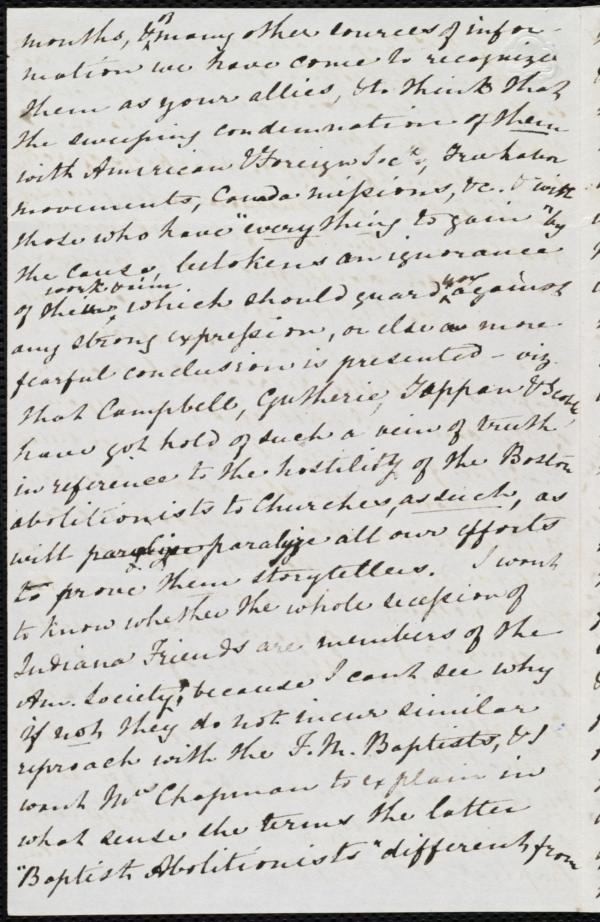 months, & many other sources of infor-
mation we have come to recognize
them as your allies, & to think that
the sweeping condemnation of them
with American & Foreign Soc.s, Free labor
movements, Canada missions, &c. & with
those who have "every thing to gain" by
the cause, betokens an ignorance
of their working, which should guard you against
any strong expression, or else a more
fearful conclusion is presented - viz
that Campbell, Gutherie, Tappan & Scoble,
have got hold of such a vein of truth
in reference to the hostility of the Boston
abolitionists to Churches, as such, as
will paralize paralyze all our efforts
to prove them storytellers. I want
to know whether the whole secession of
Indiana Friends are members of the
Am. Society, because I cant see why
if not they do not incur similar
reproach with the F. W. Baptists, & I
want Mrs Chapman to explain in
what sense she terms the latter
"Baptist Abolitionists" different from